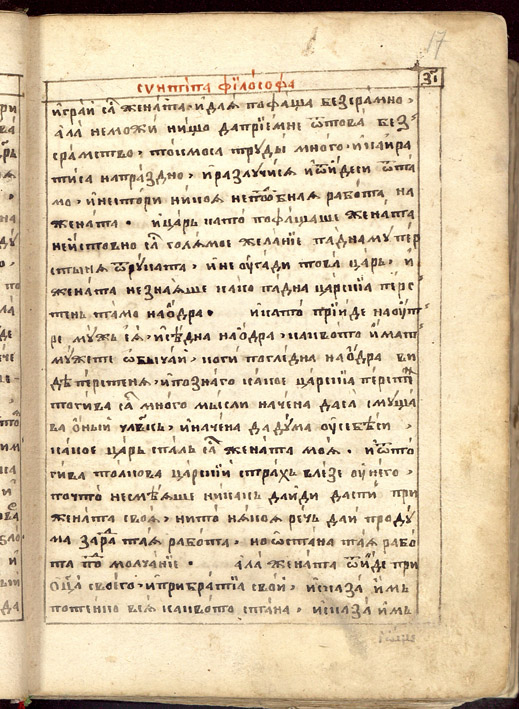 17
сѵнтіпа філософа
зі
играй са жената, и даля пофаща безсрамно,
ала неможи нищо даприемне ѿтова без
срамство, токмоса труды много, и каира
тиса напраздно, и разлучися и ѿиде си ѿта
мо, и нестори никоя неподобная работа на
жената. и царь като пофащаше жената
неистовно са голямое желание падна му пер
стыня ѿ руката, и не оугади това царь, и
жената незнаяше како падна царскїа перс
тень тамо на ѻдра. и като прїиде на оутр
ре мужь ея, и седна на ѻдра, каквото имат
мужете ѡбычаи, коги погледна на ѻдра ви
де перстеня, и позна го какое царскїа перстен
тогива са много мысли начена даса смуща
ва ѻный члвкь, и начена да дума оу себеси,
какое царь спаль са жената моя. и ѿто
гива толкова царскїй страхь влезе оу него,
почто несмеяше никакь даиди даспи при
жената своя, нито някоя речь даи проду
ма заради тая работа, но ѡстана тая рабо
та под молчанїе. ала жената ѿиде при
ѻца своего, и при братїа свои, и сказа имь
потенно вся каквото стана, и сказа имь